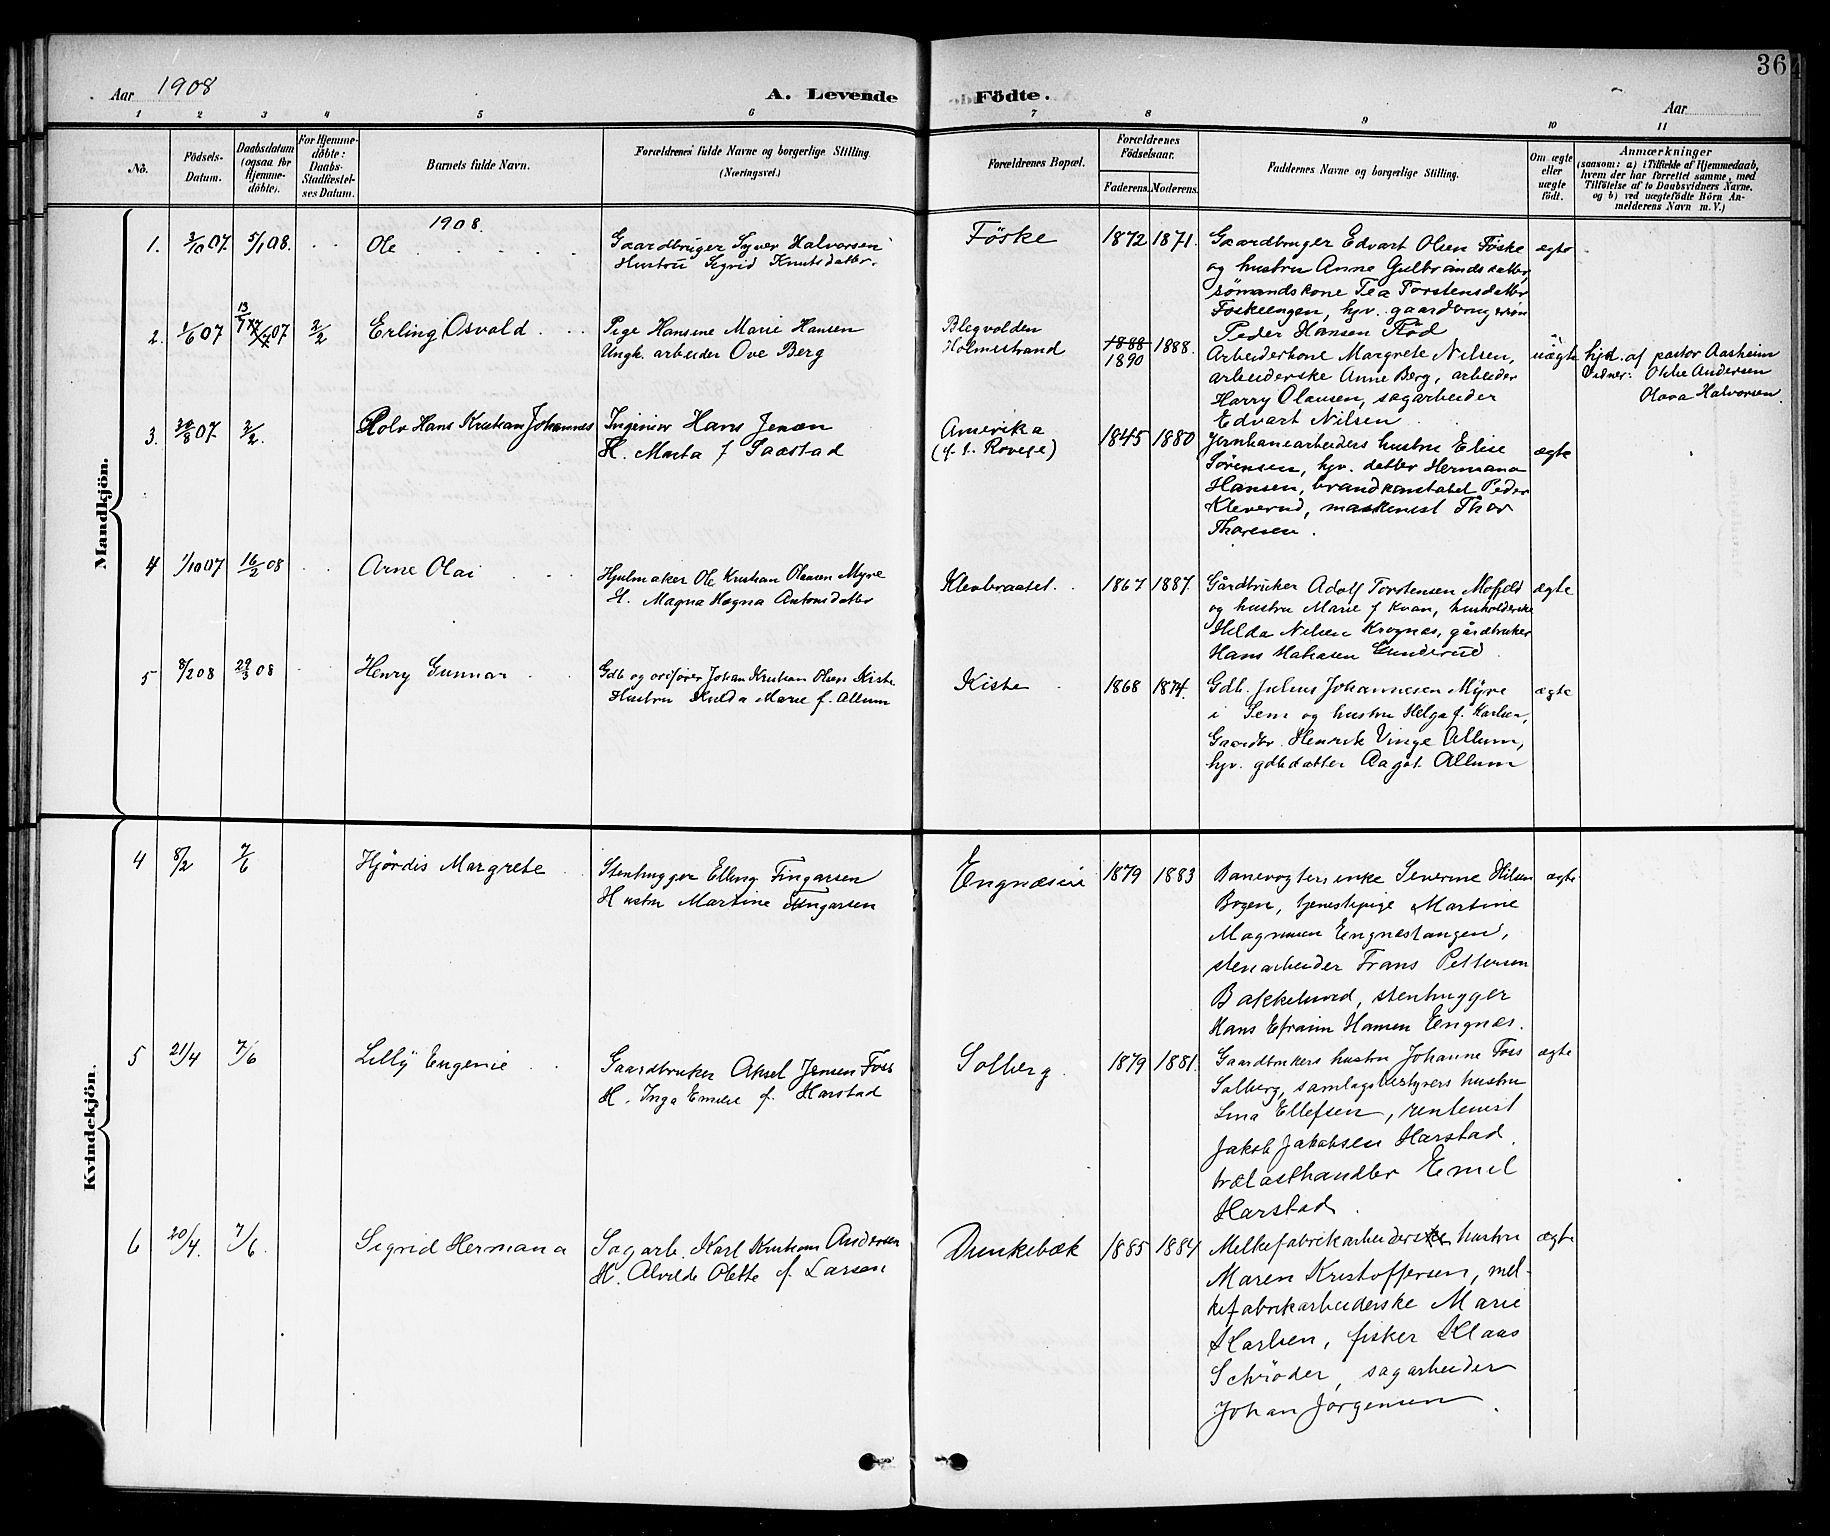 364
Aar 1908
A. Levende Födte.
Aar
1 2 3 4 5 6 7 8 9 10 11
No.
Födsels-
Datum.
Daabsdatum
(ogsaa for
Hjemme-
döbte).
For Hjemme-
döbte:
Daabs-
Stadfæstel-
ses Datum.
Barnets fulde Navn.
Forældrenes fulde Navne og borgerlige Stilling.
(Næringsvei.)
Forældrenes Bopæl.
Forældrenes
Födselsaar.
Faderens. Moderens.
Faddernes Navne og borgerlige Stilling.
Om ægte
eller
uægte
födt.
Anmærkninger
(saasom: a) i Tilfælde af Hjemmedaab,
hvem der har forrettet samme, med
Tilföielse af to Daabsvidners Navne.
og b) ved uægtefödte Börn An-
melderens Navn m. V.)
Mandkjön.
1908.
1. 3/10 07. 5/1 08. Ole
Gaardbruger Syver Halvorsen
Hustru Sigrid Knutsdatter.
Föske
1872 1871.
Gaardbruger Edvart Olsen Föske
og hustru Anne Gulbrandsdatter,
sömandskone Tea Torstensdatter
Foskeengen, hjv. gaardbrugersön
Peder Hansen Röd
ægte
2. 1/6 07 13/7 07 2/2 Erling Osvald
Pige Hansine Marie Hansen
Ungk. arbeider Ove Berg
Blegvolden
Holmestrand
1888 1888.
1890
Arbeiderkone Margrete Nilsen,
arbeiderske Anne Berg, arbeider
Harry Olausen, sagarbeider
Edvart Nilsen
uægte
hjd. af pastor Aasheim
Vidner: Okke Andersen
Olava Halvorsen.
3. 20/8 07. 2/2. Rolv Hans Kristian Johannes
Ingeniör Hans Jensen
H. Marta f Saastad
Amerika
(f. t. Rovese)
1845 1880
Jernbanearbeiders hustru Elise
Sörensen, hjv. datter Hermana
Hansen, brandkonstabel Peder
Kleverud, maskenist Thor
Thoresen.
ægte
4 1/10 07 16/2 08 Arne Olai
Hjulmaker Ole Kristian Olausen Myre
H. Magna Hagna Antonsdatter
Klevbraatet.
1867 1887.
Gårdbruker Adolf Torstensen Mofjeld
og hustru Marie f Kvan, husholderske
Hilda Nilsen Krognæs, gårdbruker
Hans Matiasen Gunderud
ægte
5 8/2 08 29/3 08 Henry Gunnar
Gdb og ordförer Johan Kristian Olsen Kiste
Hustru Hulda Marie f. Allum
Kiste
1868 1874.
Gdb. Julius Johannesen Myre
i Sem og hustru Helga f. Karlsen,
Gaardbr. Henrik Vinge Allum,
hjv. gdbdatter Aagot Allum
ægte
Kvindekjön.
4 8/2 7/6 Hjördis Margrete
Stenhugger Elling Fingarsen
Hustru Martine Fingarsen
Engnæseie
1879 1883
Banevogterenke Severine Hilsen
Bogen, tjenestepige Martine
Magnusen Engnestangen,
stenarbeider Frans Pettersen
Bakkelund, stenhugger
Hans Efraim Hansen Engnæs.
ægte
5 21/4 7/6 Lilly Eugenie
Gaardbruker Aksel Jensen Foss
H. Inga Emilie f. Harstad
Solberg.
1879 1881.
Gaardbrukers hustru Johanne Foss
Solberg, samlagsbestyrers hustru
Lina Ellefsen, rentenist
Jakob Jakobsen Harstad,
trælasthandler Emil
Harstad.
ægte
6 20/4. 7/6. Sigrid Hermana
Sagarb. Karl Kristian Andersen
H. Alvilde Olette f. Larsen
Dunkebæk
1885 1884
Melkefabrikarbeiders hustru
Maren Kristoffersen, mel-
kefabrikarbeiderske Marie
Karlsen, fisker Klaas
Schröder, sagarbeider
Johan Jörgensen.
ægte